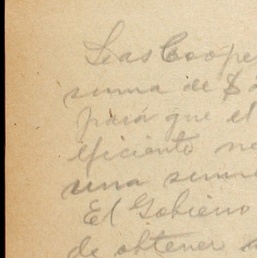 Las Coope
suma de $
para que el
eficiente ne
una suma
El Gobierno
de obtener a